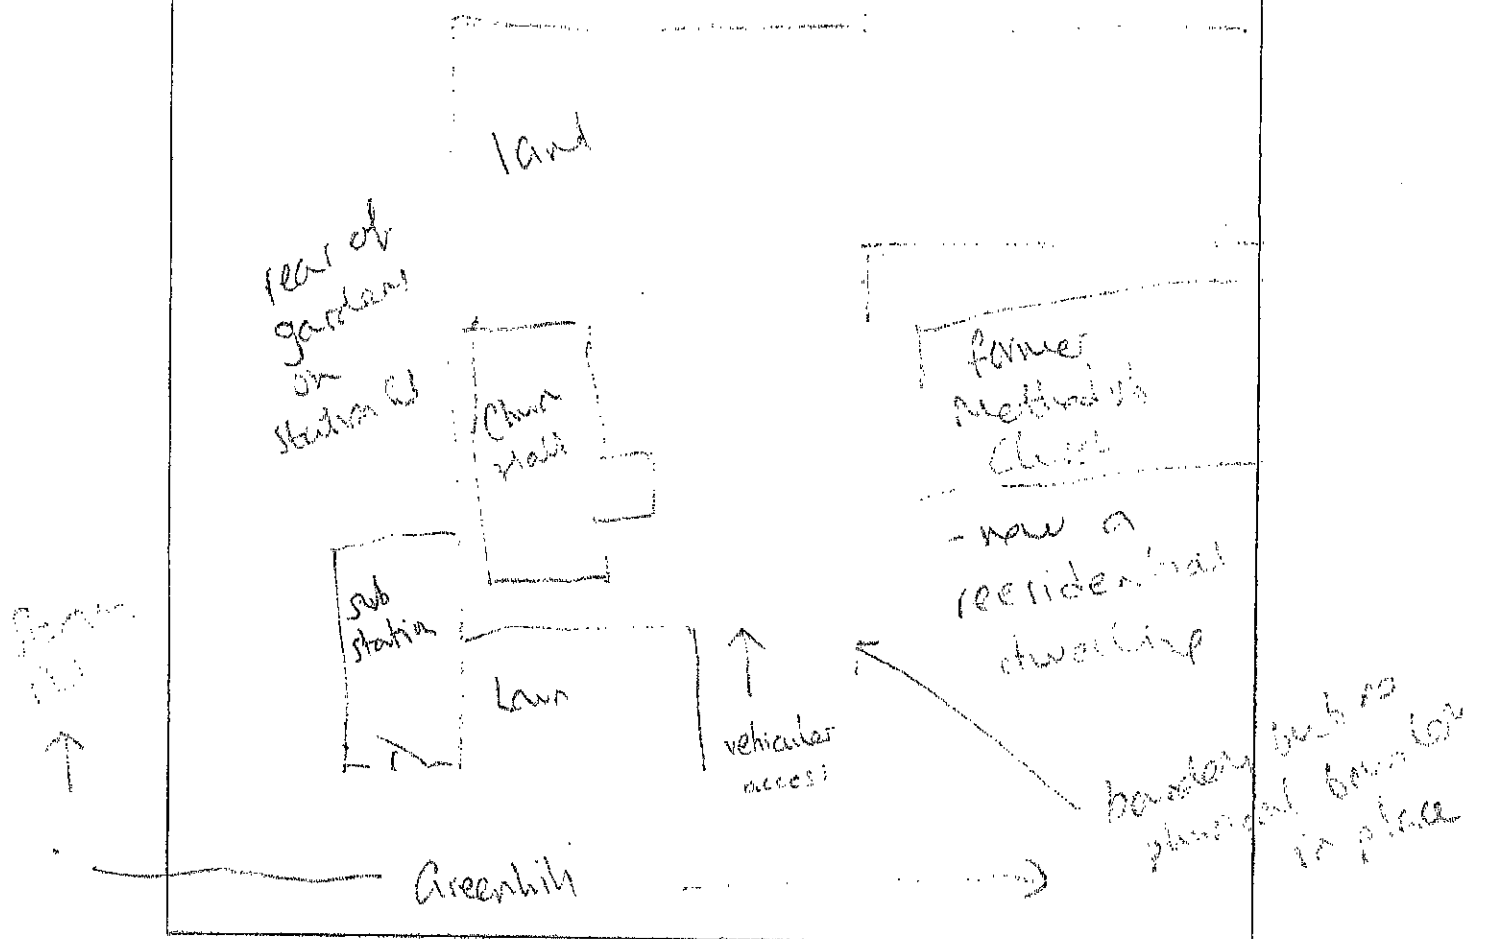 land
rear of
gardens
on
Station Cl
former
Methodist
Church
- now a
reesidential
dwelling
sub
station
Lawn
vehicular
access
boundary but no
physical boundary
in place
Greenhill